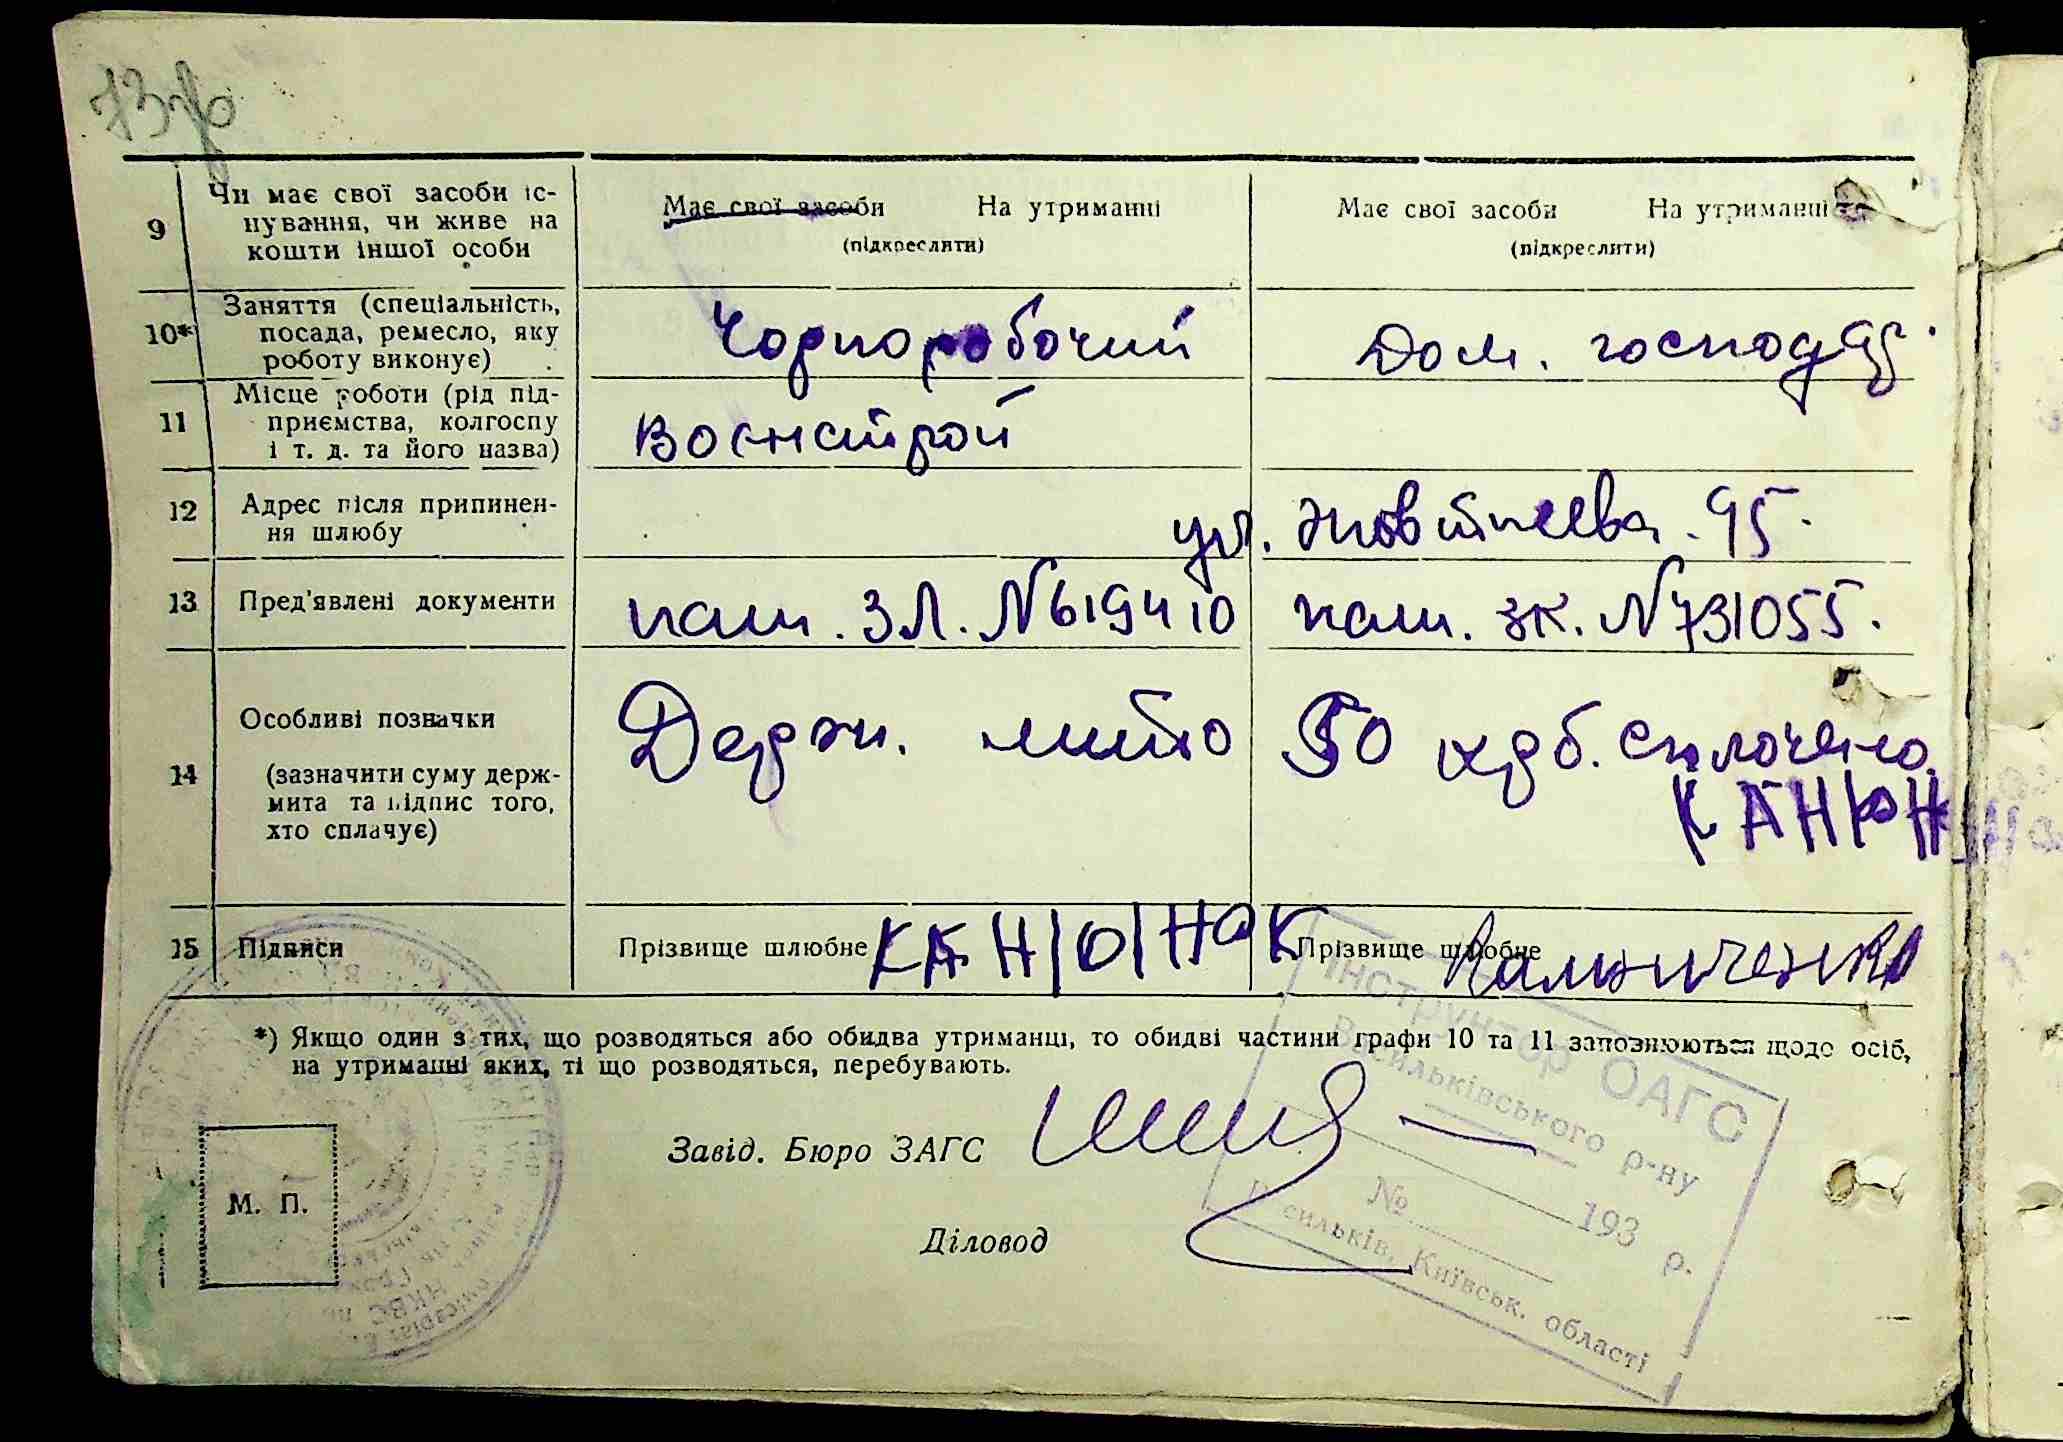 73
9
Чи має свої засоби іс-
нування, чи живе на
кошти іншої особи
Має свої засоби На утриманні
(підкреслити)
Має свої засоби На утриманні
(підкреслити)
10*
Заняття (спеціальність,
посада, ремесло, яку
роботу виконує)
Чорноробочий
Дом. господар.
11
Місце роботи (рід під-
приємства, колгоспу
і т. д. та його назва)
Воєнстрой
12
Адрес після припинен-
ня шлюбу
ул. Жовтнева. 95.
13
Пред'явлені документи
паш. ЗЛ. N 619410
паш. зк. N 731055.
14
Особливі позначки
(зазначити суму держ-
мита та підпис того,
хто сплачує)
Держ. мито 50 крб. сплочено.
КАНЮН
15
Підписи
Прізвище шлюбне КАНЮНок
Прізвище шлюбне
*) Якщо один з тих, що розводяться або обидва утриманці, то обидві частини графи 10 та 11 заповнюються щодо осіб,
на утриманні яких, ті що розводяться, перебувають.
М. П.
Завід. Бюро ЗАГС
Діловод
Інструктор ОАГС
Васильківського р-ну
№ 193 р.
Васильків, Київськ. області